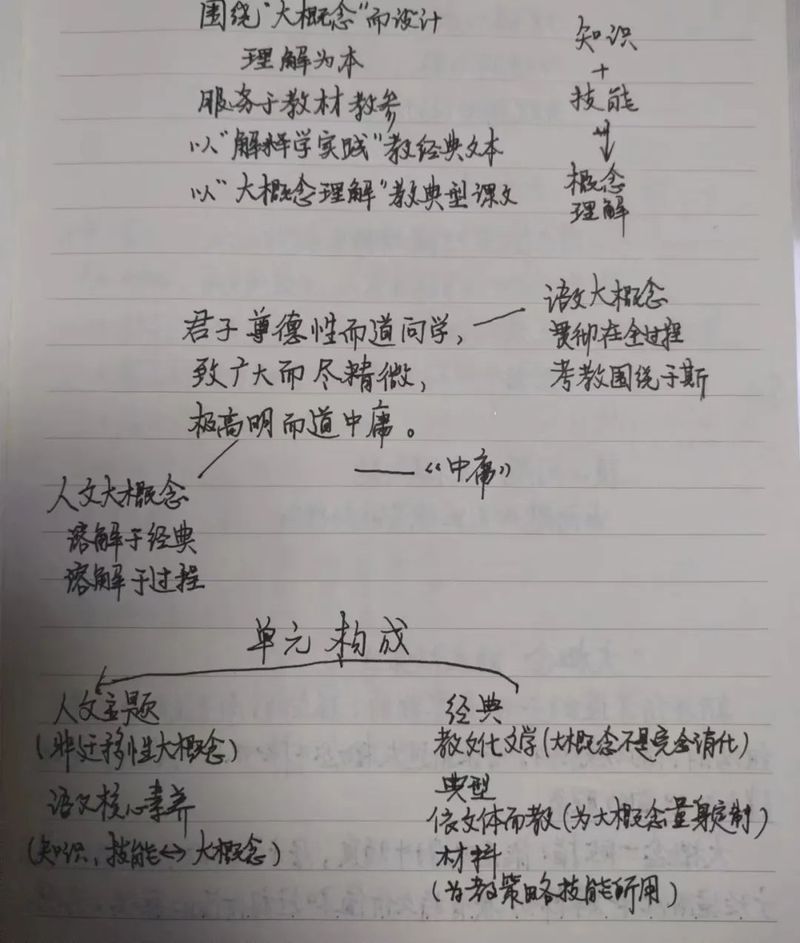 围绕“大概念”而设计
理解为本
服务于教材教参
以“解释学实践”教经典文本
以“大概念理解”教典型课文
知识
+
技能
↓
概念
理解
君子尊德性而道问学,
致广大而尽精微,
极高明而道中庸。
——《中庸》
语文大概念
贯彻在全过程
考教围绕于斯
人文大概念
溶解于经典
溶解于过程
单元构成
人文主题
(非迁移性大概念)
语文核心素养
(知识,技能↔大概念)
经典
教文化文学(大概念不是完全消化)
典型
依文体而教(为大概念量身定制)
材料
(为教策略技能所用)